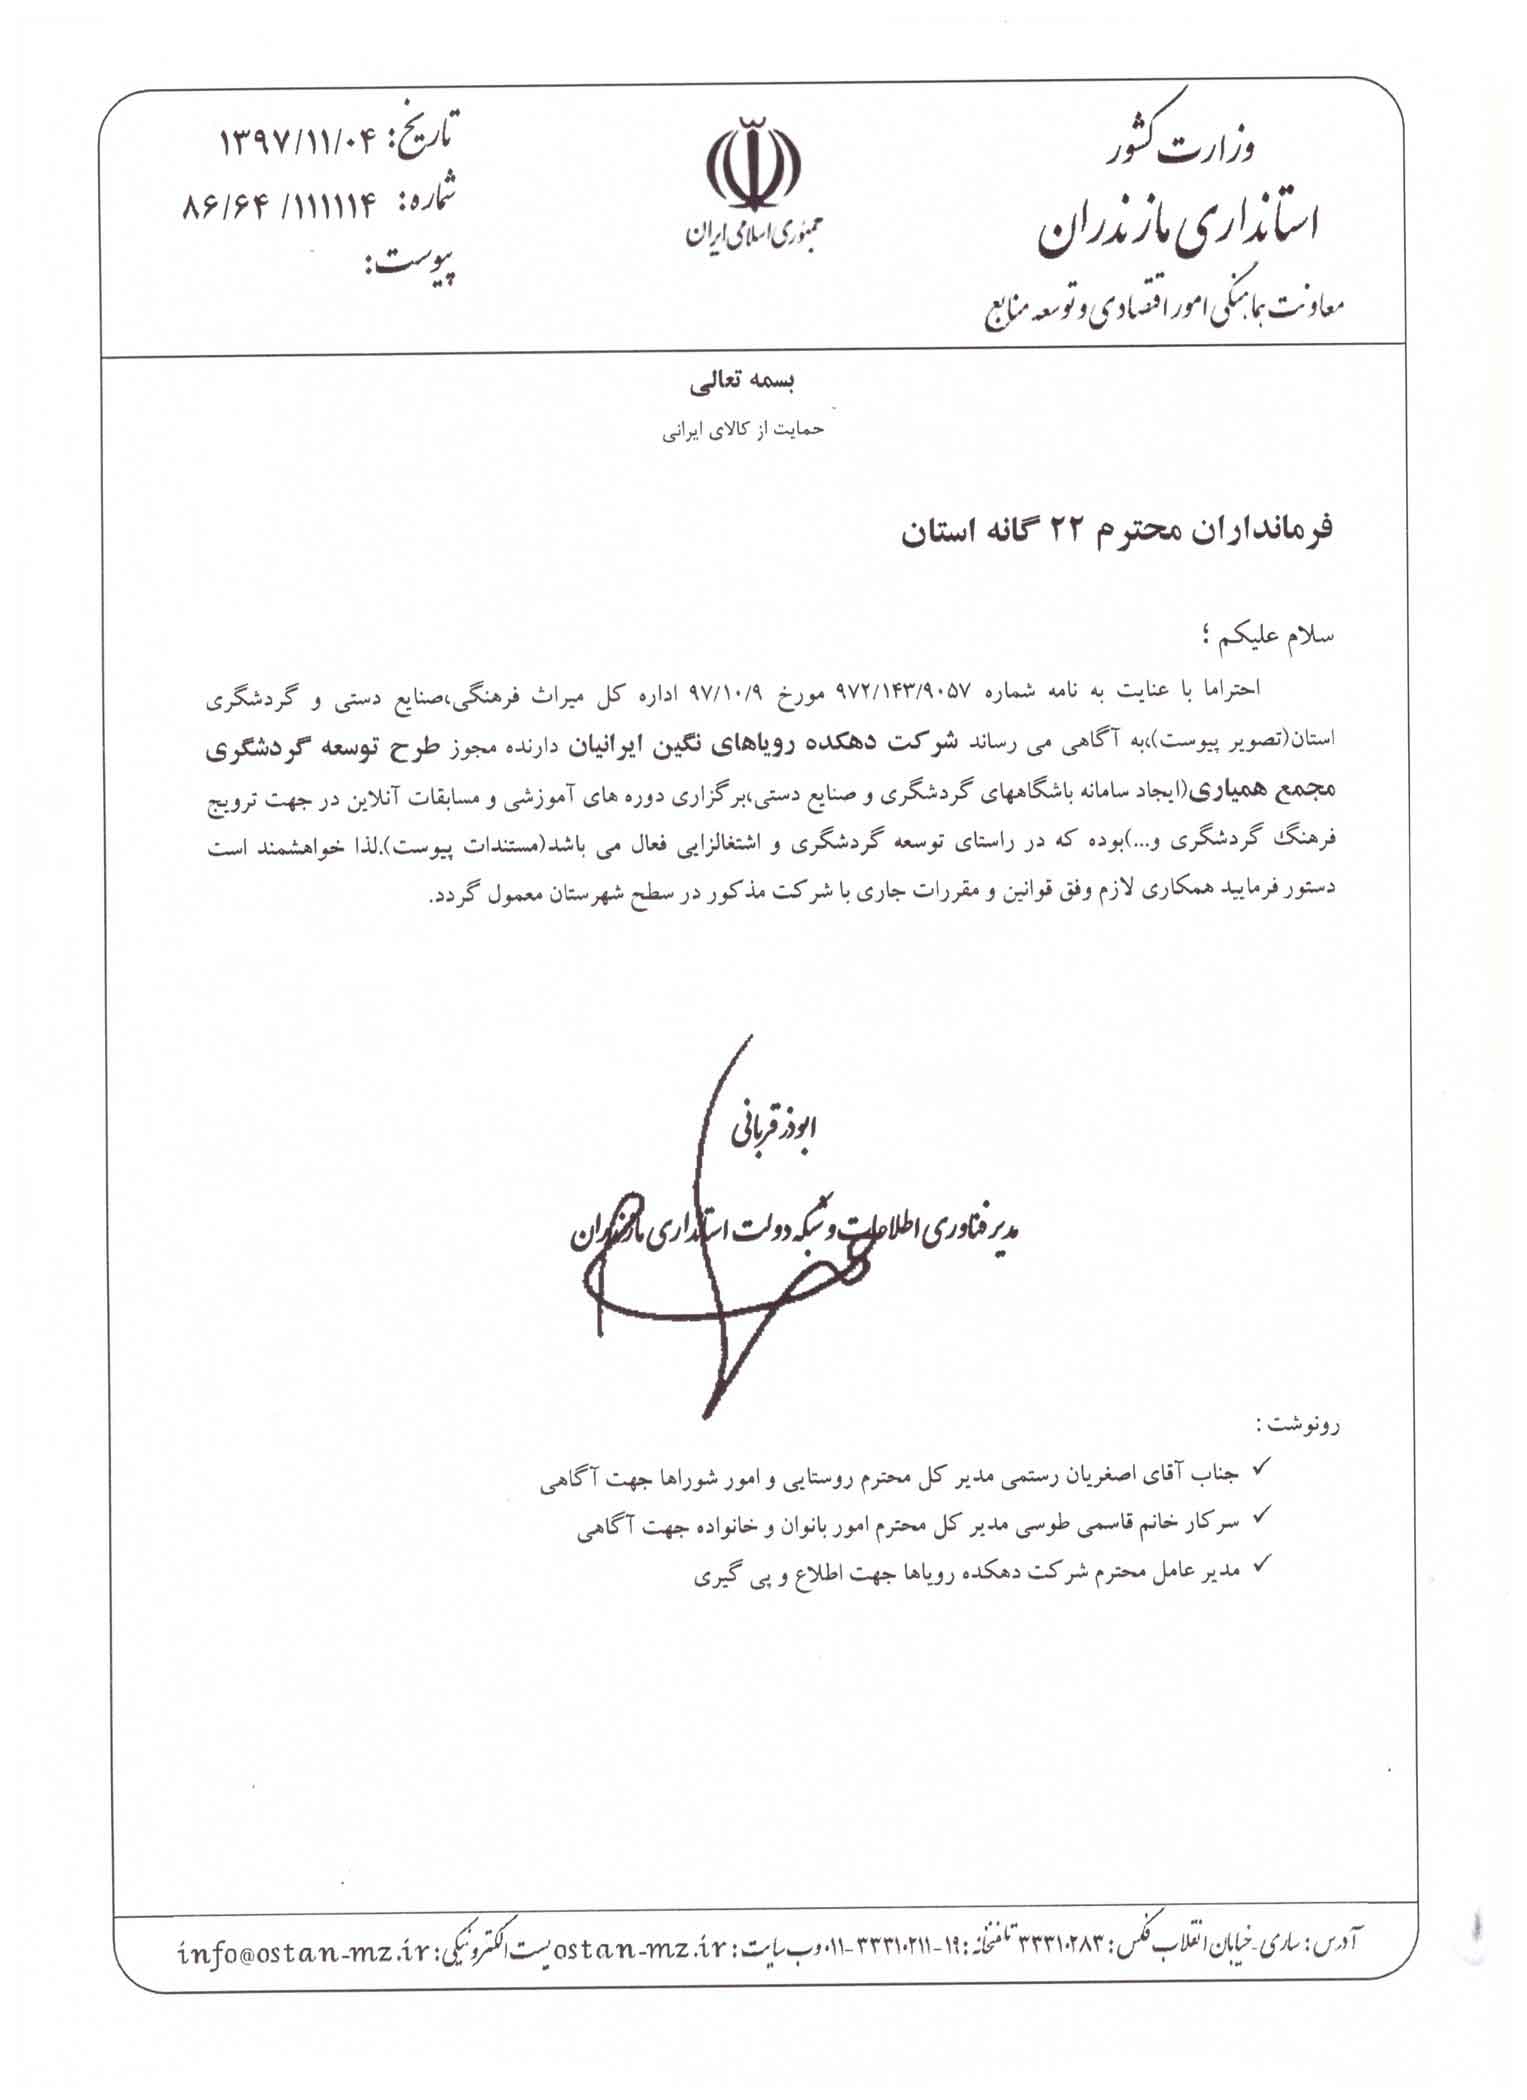 وزارت کشور
استانداری مازندران
معاونت هماهنگی امور اقتصادی و توسعه منابع
جمهوری اسلامی ایران
تاریخ: ۱۳۹۷/۱۱/۰۴
شماره: ۸۶/۶۴ /۱۱۱۱۱۴
پیوست:
بسمه تعالی
حمایت از کالای ایرانی
فرمانداران محترم ۲۲ گانه استان
سلام علیکم ؛
احتراما با عنایت به نامه شماره ۹۷۲/۱۴۳/۹۰۵۷ مورخ ۹۷/۱۰/۹ اداره کل میراث فرهنگی،صنایع دستی و گردشگری
استان(تصویر پیوست)،به آگاهی می رساند شرکت دهکده رویاهای نگین ایرانیان دارنده مجوز طرح توسعه گردشگری
مجمع همیاری(ایجاد سامانه باشگاههای گردشگری و صنایع دستی،برگزاری دوره های آموزشی و مسابقات آنلاین در جهت ترویج
فرهنگ گردشگری و...)بوده که در راستای توسعه گردشگری و اشتغالزایی فعال می باشد(مستندات پیوست).لذا خواهشمند است
دستور فرمایید همکاری لازم وفق قوانین و مقررات جاری با شرکت مذکور در سطح شهرستان معمول گردد.
ابوذر قربانی
مدیر فناوری اطلاعات و شبکه دولت استانداری مازندران
رونوشت :
✓ جناب آقای اصغریان رستمی مدیر کل محترم روستایی و امور شوراها جهت آگاهی
✓ سرکار خانم قاسمی طوسی مدیر کل محترم امور بانوان و خانواده جهت آگاهی
✓ مدیر عامل محترم شرکت دهکده رویاها جهت اطلاع و پی گیری
آدرس : ساری - خیابان انقلاب فکس : ۳۳۳۱۰۲۸۳ تلفنخانه : ۱۹-۳۳۳۱۰۲۱۱-۰۱۱ وب سایت : ostan-mz.ir پست الکترونیکی : info@ostan-mz.ir